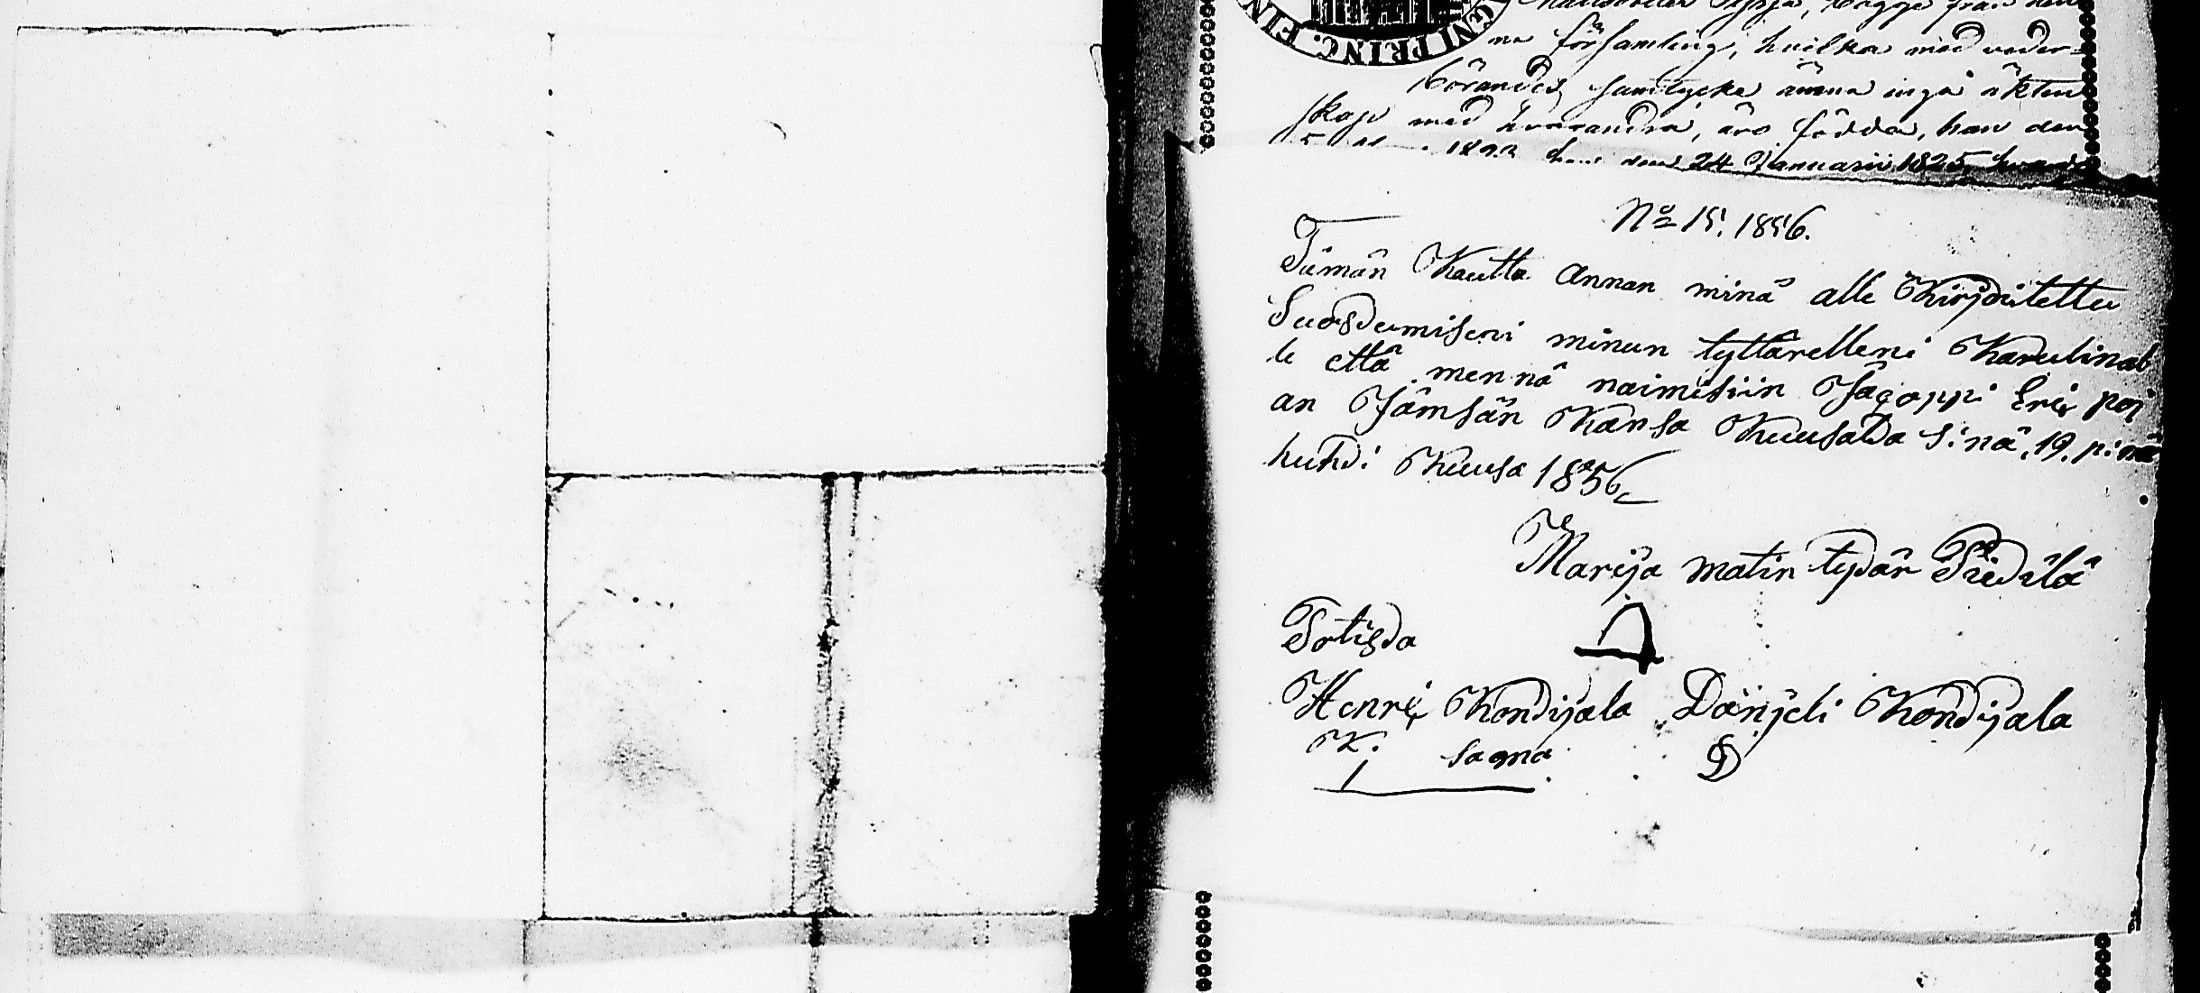 GNI PRINC. FIN
na församling, hvilka med veder-
börandes samtycke ämna ingå äkten
skap med hvarandra, äro födda, han den
1823 den 24 Januarii 1825,
No 15. 1856.
Tämän Kautta annan minä alle Kirjoitettu
Suosdumiseni minun tyttärelleni Karulinal
le että mennä naimisiin Jagoppi Eric poj
an Jämsän Kansa Kuusalda sinä, 19. pinä
huhdi Kuusa 1856
Marija matin tydär Piedilä
Totisda
Henrik Kondijala Danjeli Kondijala
K. sagna D